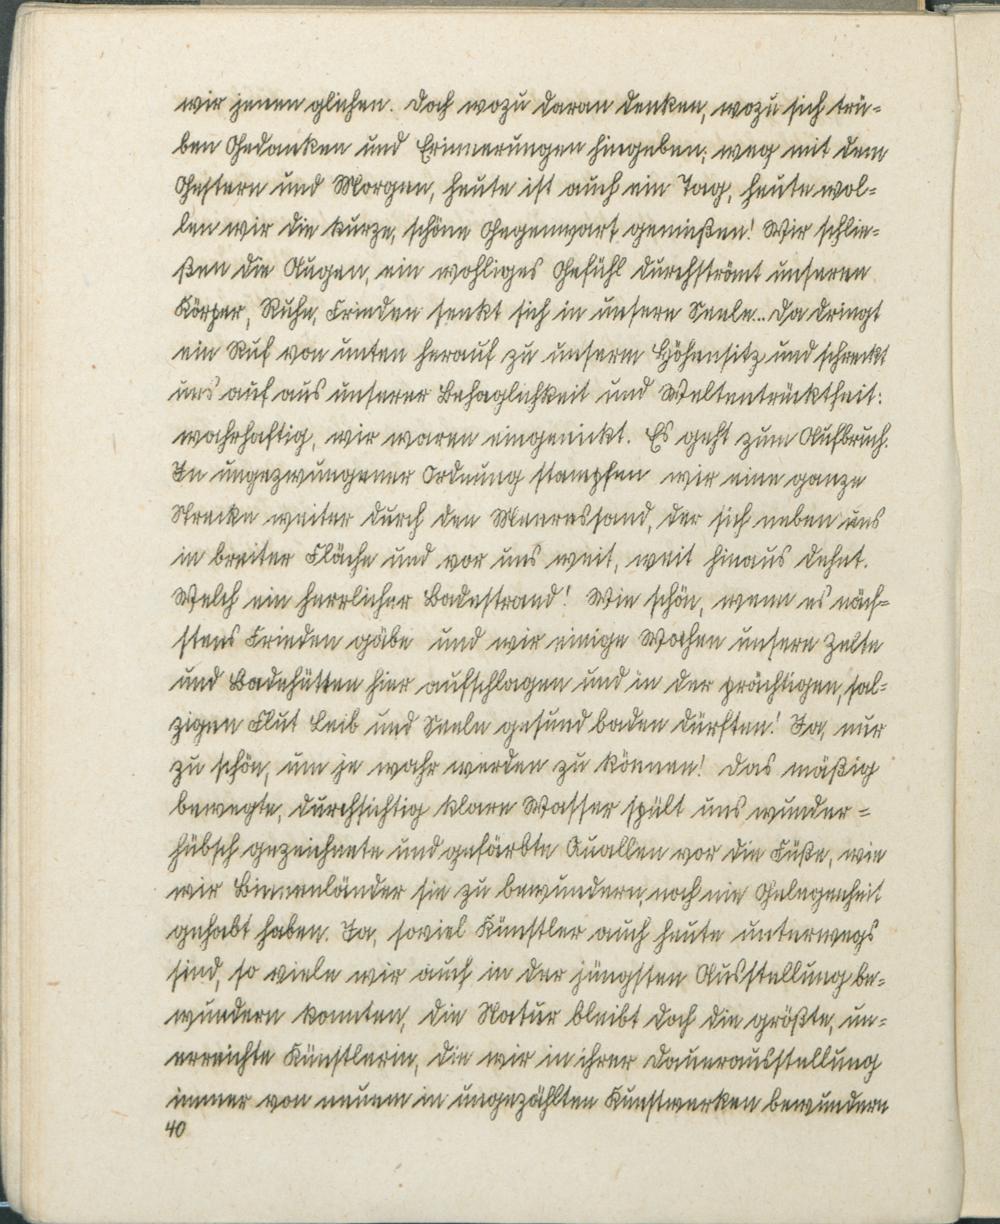 wir jenen glichen. Doch wozu daran denken, wozu sich trü-
ben Gedanken und Erinnerungen hingeben; weg mit dem
Gestern und Morgen, heute ist auch ein Tag, heute wol-
len wir die kurze, schöne Gegenwart genießen! Wir schlie-
ßen die Augen, ein wohliges Gefühl durchströmt unseren
Körper, Ruhe, Frieden senkt sich in unsere Seele... Da dringt
ein Ruf von unten herauf zu unserm Höhensitz und schreckt
uns auf aus unserer Behaglichkeit und Weltentrücktheit:
wahrhaftig, wir waren eingenickt. Es geht zum Aufbruch.
In ungezwungener Ordnung stampfen wir eine ganze
Strecke weiter durch den Meeressand, der sich neben uns
in breiter Fläche und vor uns weit, weit hinaus dehnt.
Welch ein herrlicher Badestrand! Wie schön, wenn es näch-
stens Frieden gäbe und wir einige Wochen unsere Zelte
und Badehütten hier aufschlagen und in der prächtigen, sal-
zigen Flut Leib und Seele gesund baden dürften! Ja, nur
zu schön, um je wahr werden zu können! Das mäßig
bewegte, durchsichtig klare Wasser spült uns wunder-
hübsch gezeichnete und gefärbte Quallen vor die Füße, wie
wir Binnenländer sie zu bewundern noch nie Gelegenheit
gehabt haben. Ja, soviel Künstler auch heute unterwegs
sind, so viele wir auch in der jüngsten Ausstellung be-
wundern konnten, die Natur bleibt doch die größte, un-
erreichte Künstlerin, die wir in ihrer Dauerausstellung
immer von neuem in ungezählten Kunstwerken bewundern
40